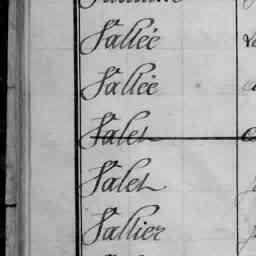 Vallée
Vallée
Valet
Valet
Vallier